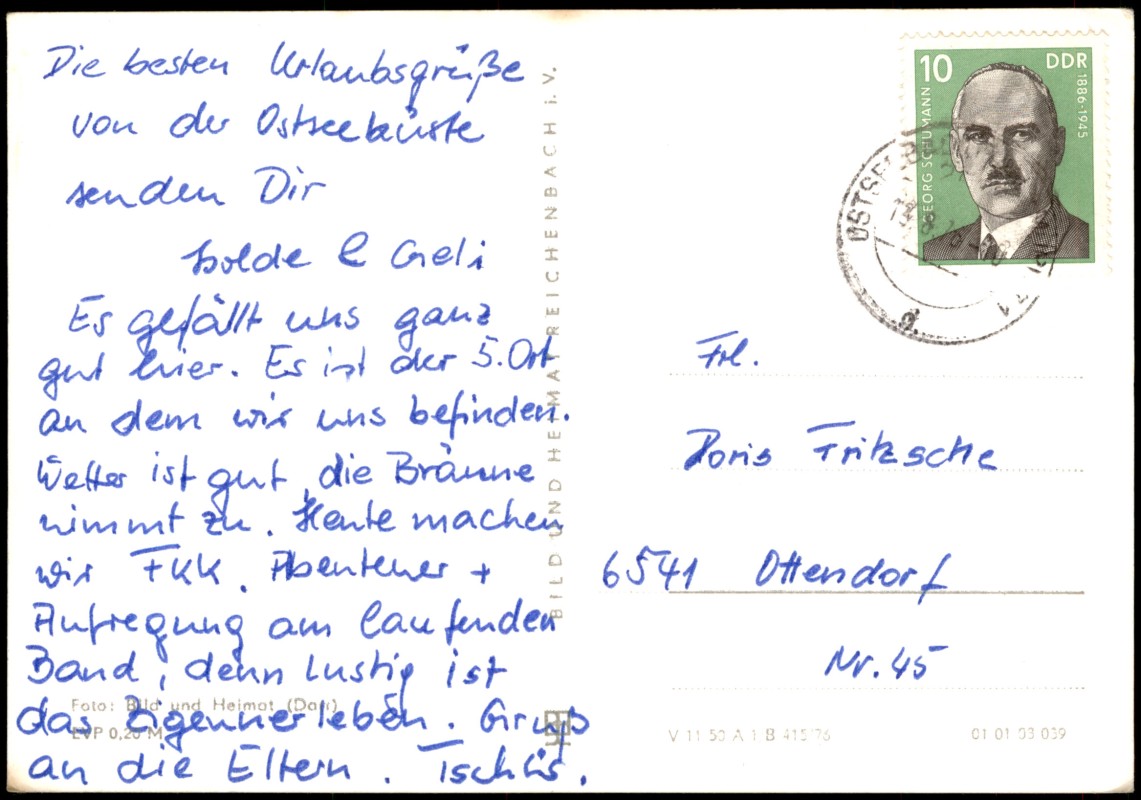 Die besten Urlaubsgrüße
von der Ostseeküste
senden Dir
Isolde & Geli
Es gefällt uns ganz
gut hier. Es ist der 5. Ort
an dem wir uns befinden.
Wetter ist gut, die Bräune
nimmt zu. Heute machen
wir FKK. Abenteuer +
Aufregung am laufenden
Band, denn lustig ist
das Zigeunerleben. Gruß
an die Eltern. Tschüs.
Foto: Bild und Heimat
EVP 0,20 M
BILD UND HEIMAT REICHENBACH i. V.
10 DDR
GEORG SCHUMANN
1886-1945
OSTSEE
d
Frl.
Doris Fritzsche
6541 Ottendorf
Nr. 45
V 11 50 A 1 B 415/76
01 01 03 039